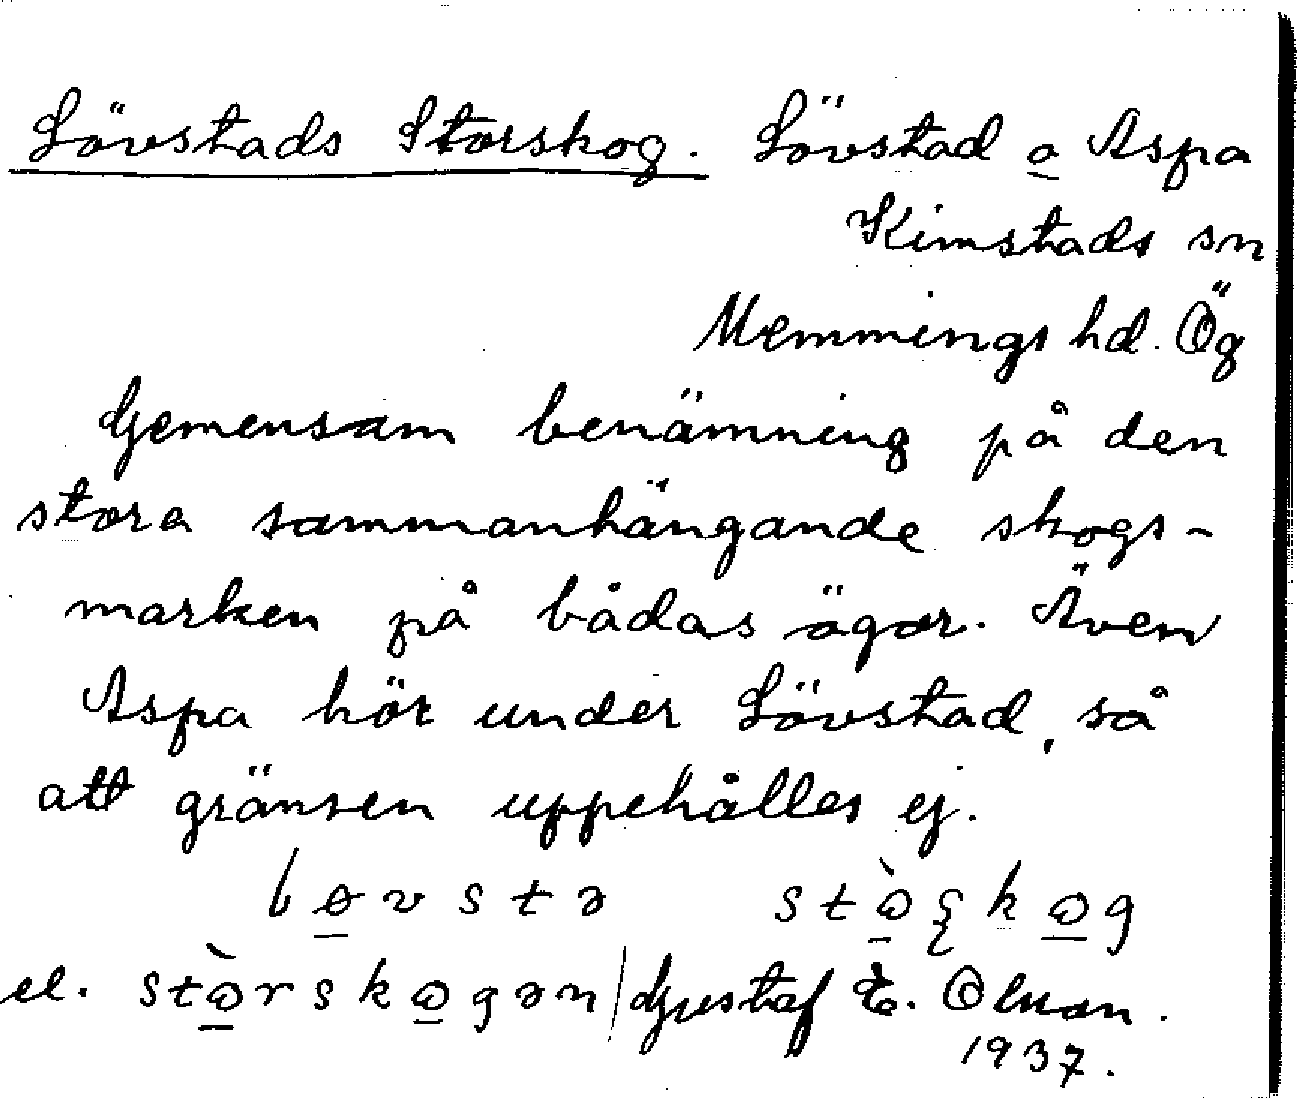 Lövstads Storskog. Lövstad o Aspa
Kimstads sn
Memmings hd. Ög
Gemensam benämning på den
stora sammanhängande skogs-
marken på bådas ägor. Även
Aspa hör under Lövstad, så
att gränsen uppehålles ej.
el. Gustaf E. Olman.
1937.